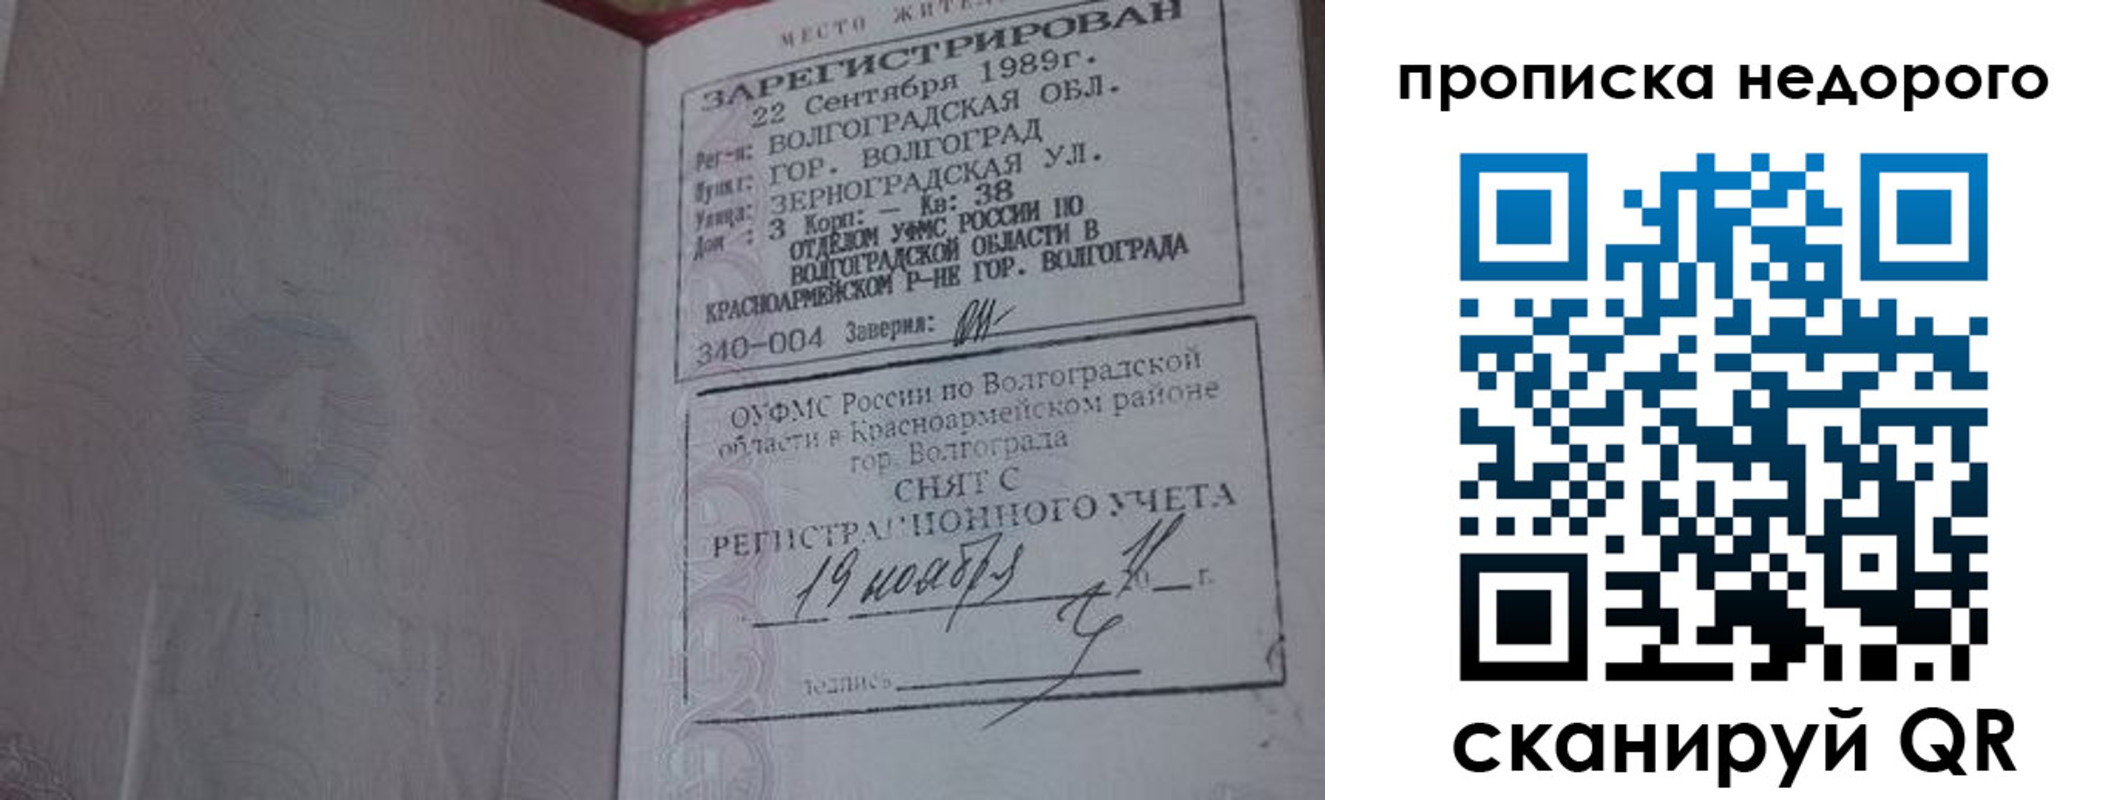 МЕСТО ЖИТЕЛ
ЗАРЕГИСТРИРОВАН
22 Сентября 1989г.
Рег-н: ВОЛГОГРАДСКАЯ ОБЛ.
Пункт: ГОР. ВОЛГОГРАД
Улица: ЗЕРНОГРАДСКАЯ УЛ.
Дом : 3 Корп: — Кв: 38
ОТДЕЛОМ УФМС РОССИИ ПО
ВОЛГОГРАДСКОЙ ОБЛАСТИ В
КРАСНОАРМЕЙСКОМ Р-НЕ ГОР. ВОЛГОГРАДА
340-004 Заверил:
ОУФМС России по Волгоградской
области в Красноармейском районе
гор. Волгограда
СНЯТ С
РЕГИСТРАЦИОННОГО УЧЕТА
19 ноября 20 г.
подпись
прописка недорого
сканируй QR